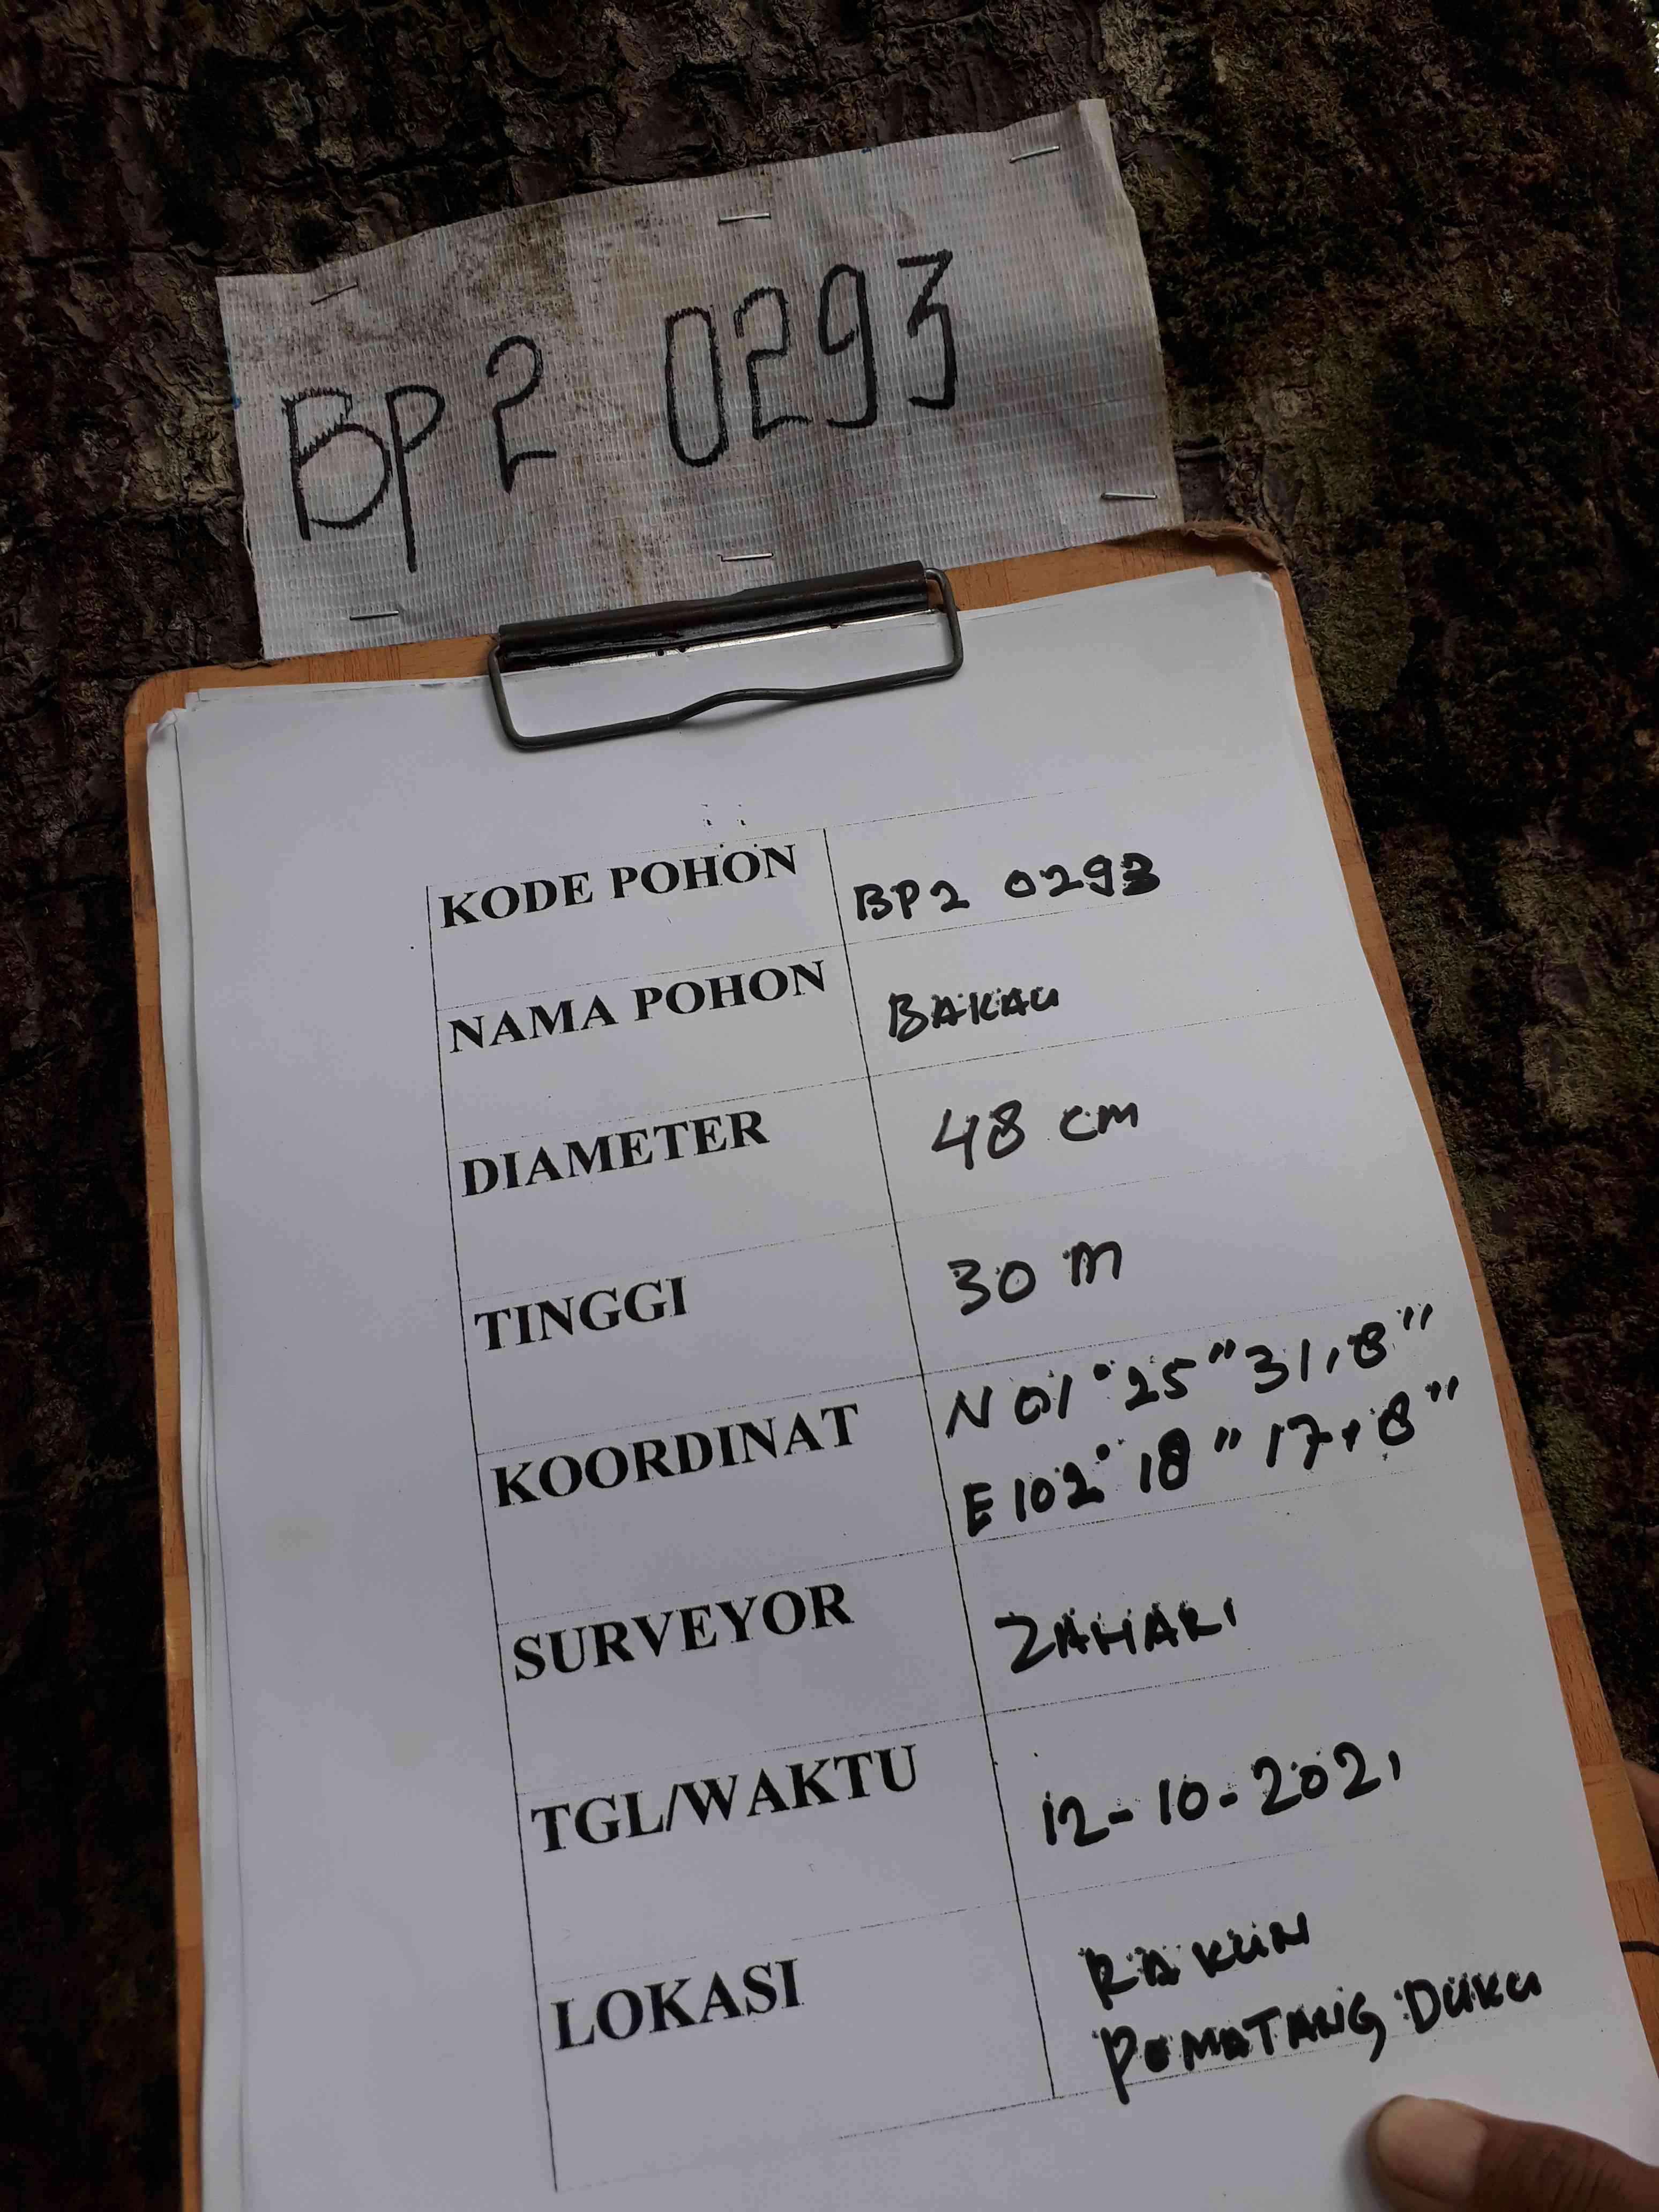 BP2 0293
KODE POHON BP2 0293
NAMA POHON BAKAU
DIAMETER 48 cm
TINGGI 30 m
KOORDINAT N 01°25"31,8"
E 102°18"17,8"
SURVEYOR ZAHARI
TGL/WAKTU 12-10-2021
LOKASI RAKUN
PEMATANG DUKU